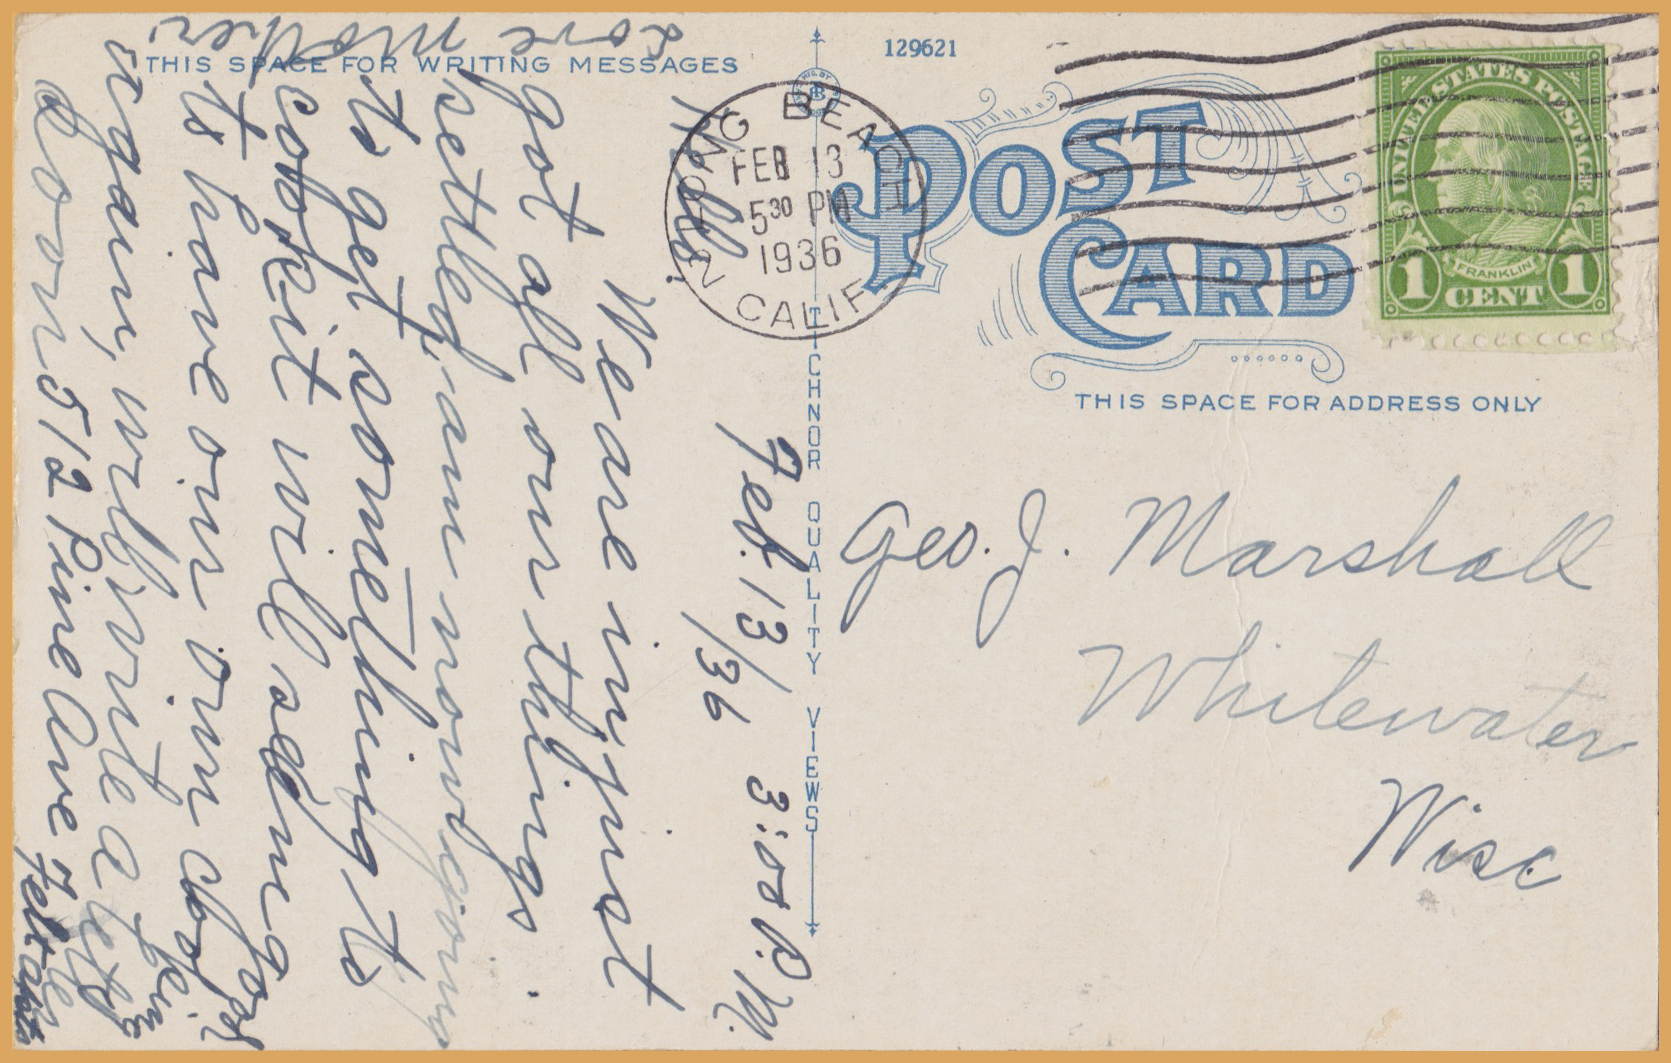 THIS SPACE FOR WRITING MESSAGES
129621
POST
CARD
THIS SPACE FOR ADDRESS ONLY
TICHNOR QUALITY VIEWS
LONG BEACH
FEB 13
5 30 PM
1936
CALIF
UNITED STATES POSTAGE
FRANKLIN
1 CENT 1
Geo. J. Marshall
Whitewater
Wisc
Feb. 13/36 3:00 P.M.
Hello!
We are in just
got all our things
settled, am now going
to get something to
cook it will seem good
to have our own
again, will write a
Room 512 Pine Ave
Love Mother.